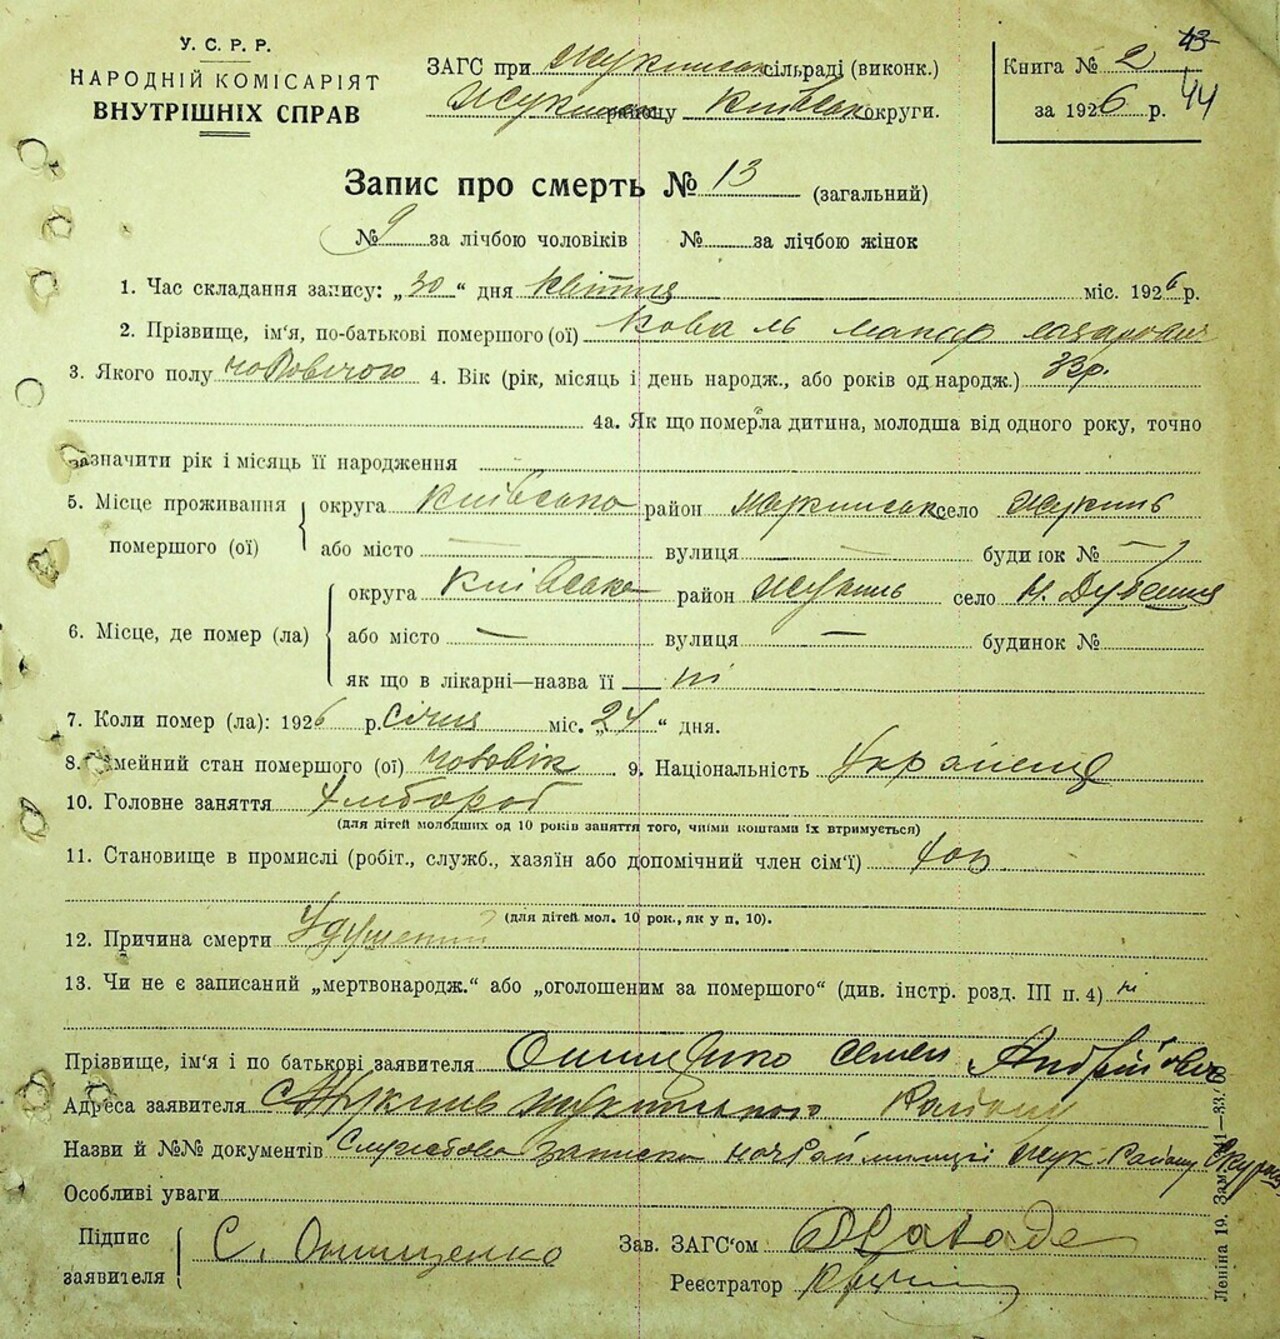 У. С. Р. Р.
НАРОДНІЙ КОМІСАРІЯТ
ВНУТРІШНІХ СПРАВ
ЗАГС при сільраді (виконк.)
району округи.
43
Книга № 2
44
за 1926 р.
Запис про смерть № 13 (загальний)
№ 9 за лічбою чоловіків № за лічбою жінок
1. Час складання запису: „30“ дня квітня міс. 1926 р.
2. Прізвище, ім'я, по-батькові помершого (ої) Коваль Макар Лазарович
3. Якого полу 4. Вік (рік, місяць і день народж., або років од народж.) р.
4а. Як що померла дитина, молодша від одного року, точно
зазначити рік і місяць її народження
5. Місце проживання помершого (ої)
округа Київська район село Жукинь
або місто — вулиця — будинок № —
6. Місце, де помер (ла)
округа Київська район Жукинь село Н. Дубечня
або місто — вулиця — будинок №
як що в лікарні—назва її ні
7. Коли помер (ла): 1926 р. січня міс. „24“ дня.
8. Сімейний стан помершого (ої) чоловік 9. Національність Українець
10. Головне заняття хлібороб
(для дітей молодших од 10 років заняття того, чиїми коштами їх втримується)
11. Становище в промислі (робіт., служб., хазяїн або допомічний член сім'ї) хоз
(для дітей мол. 10 рок., як у п. 10).
12. Причина смерти Удушений
13. Чи не є записаний „мертвонародж.“ або „оголошеним за помершого“ (див. інстр. розд. III п. 4) ні
Прізвище, ім'я і по батькові заявителя Онищенко Семен Андрійович
Адреса заявителя с. Жукинь Жукинського Району
Назви й №№ документів Службова записка міліції Жук. Району
Особліві уваги
Підпис заявителя С. Онищенко
Зав. ЗАГС'ом
Реєстратор